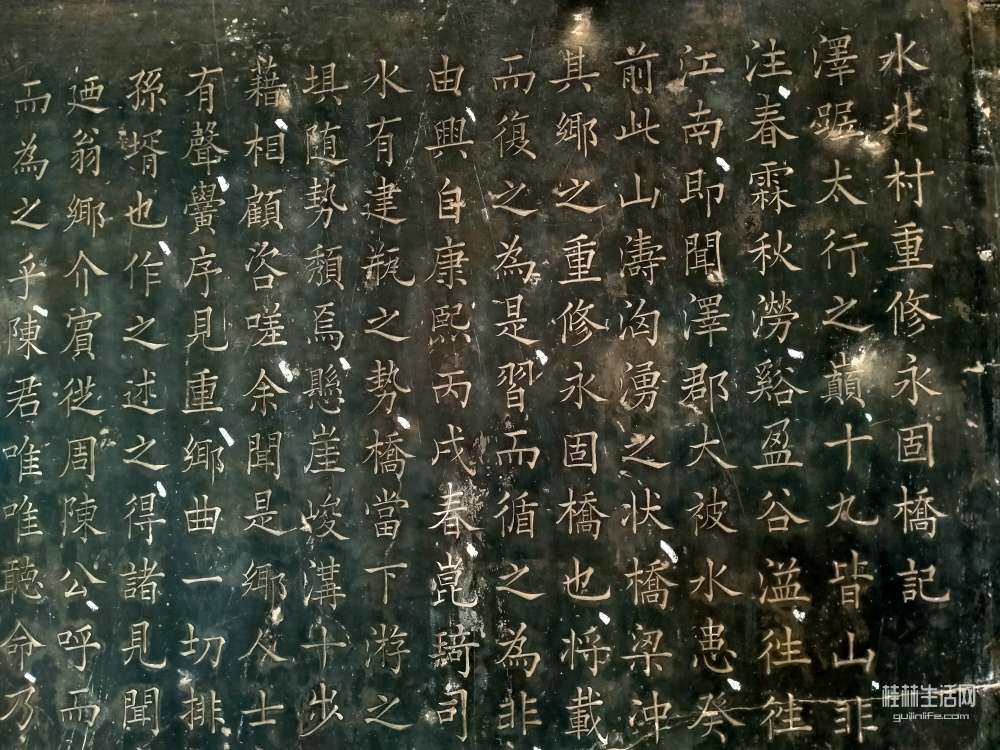 水北村重修永固橋記
澤踞太行之巔十九皆山非
注春霖秋澇谿盈谷溢往往
江南即聞澤郡大被水患癸
前此山濤洶湧之状橋梁冲
其鄉之重修永固橋也将載
而復之為是習而循之為非
由興自康熙丙戌春崑琦司
水有建瓴之勢橋當下游之
埧随勢頹焉懸崖峻溝十步
藉相顧咨嗟余聞是鄉人士
有聲黌序見重鄉曲一切排
孫壻也作之述之得諸見聞
廼翁鄉介賓從周陳公呼而
而為之乎陳君唯唯聽命乃
桂林生活网
guilinlife.com